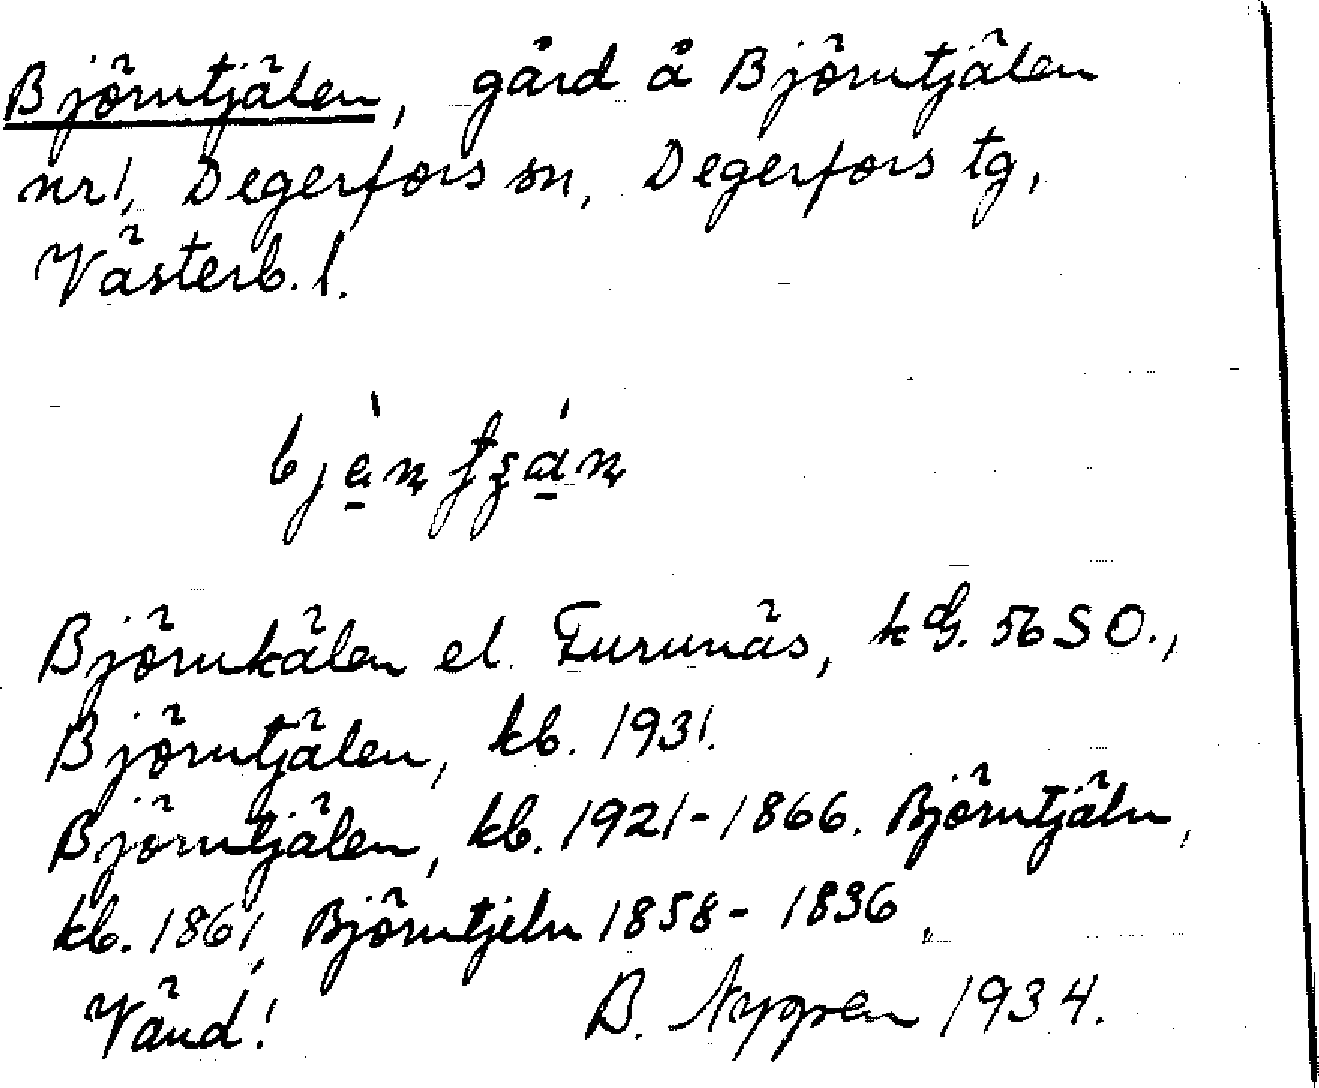 Björntjälen, gård å Björntjälen
nr 1, Degerfors sn, Degerfors tg,
Västerb. l.
Björnkälen el. Furunäs, kG. 56 SO.,
Björntjälen, kb. 1931.
Björntjälen, kb. 1921-1866. Björntjäln,
kb. 1861, Björntjeln 1858-1836.
Vänd! B. Nygren 1934.